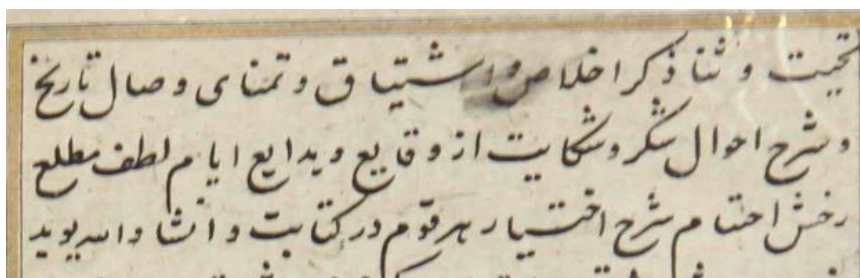 تحیت و ثنا ذکر اخلاص و اشتیاق و تمنای وصال تاریخ
و شرح احوال شکر و شکایت از وقایع و بدایع ایام لطف مطلع
اختتام شرح اختیار هر قوم در کتابت و انشا والله یوید